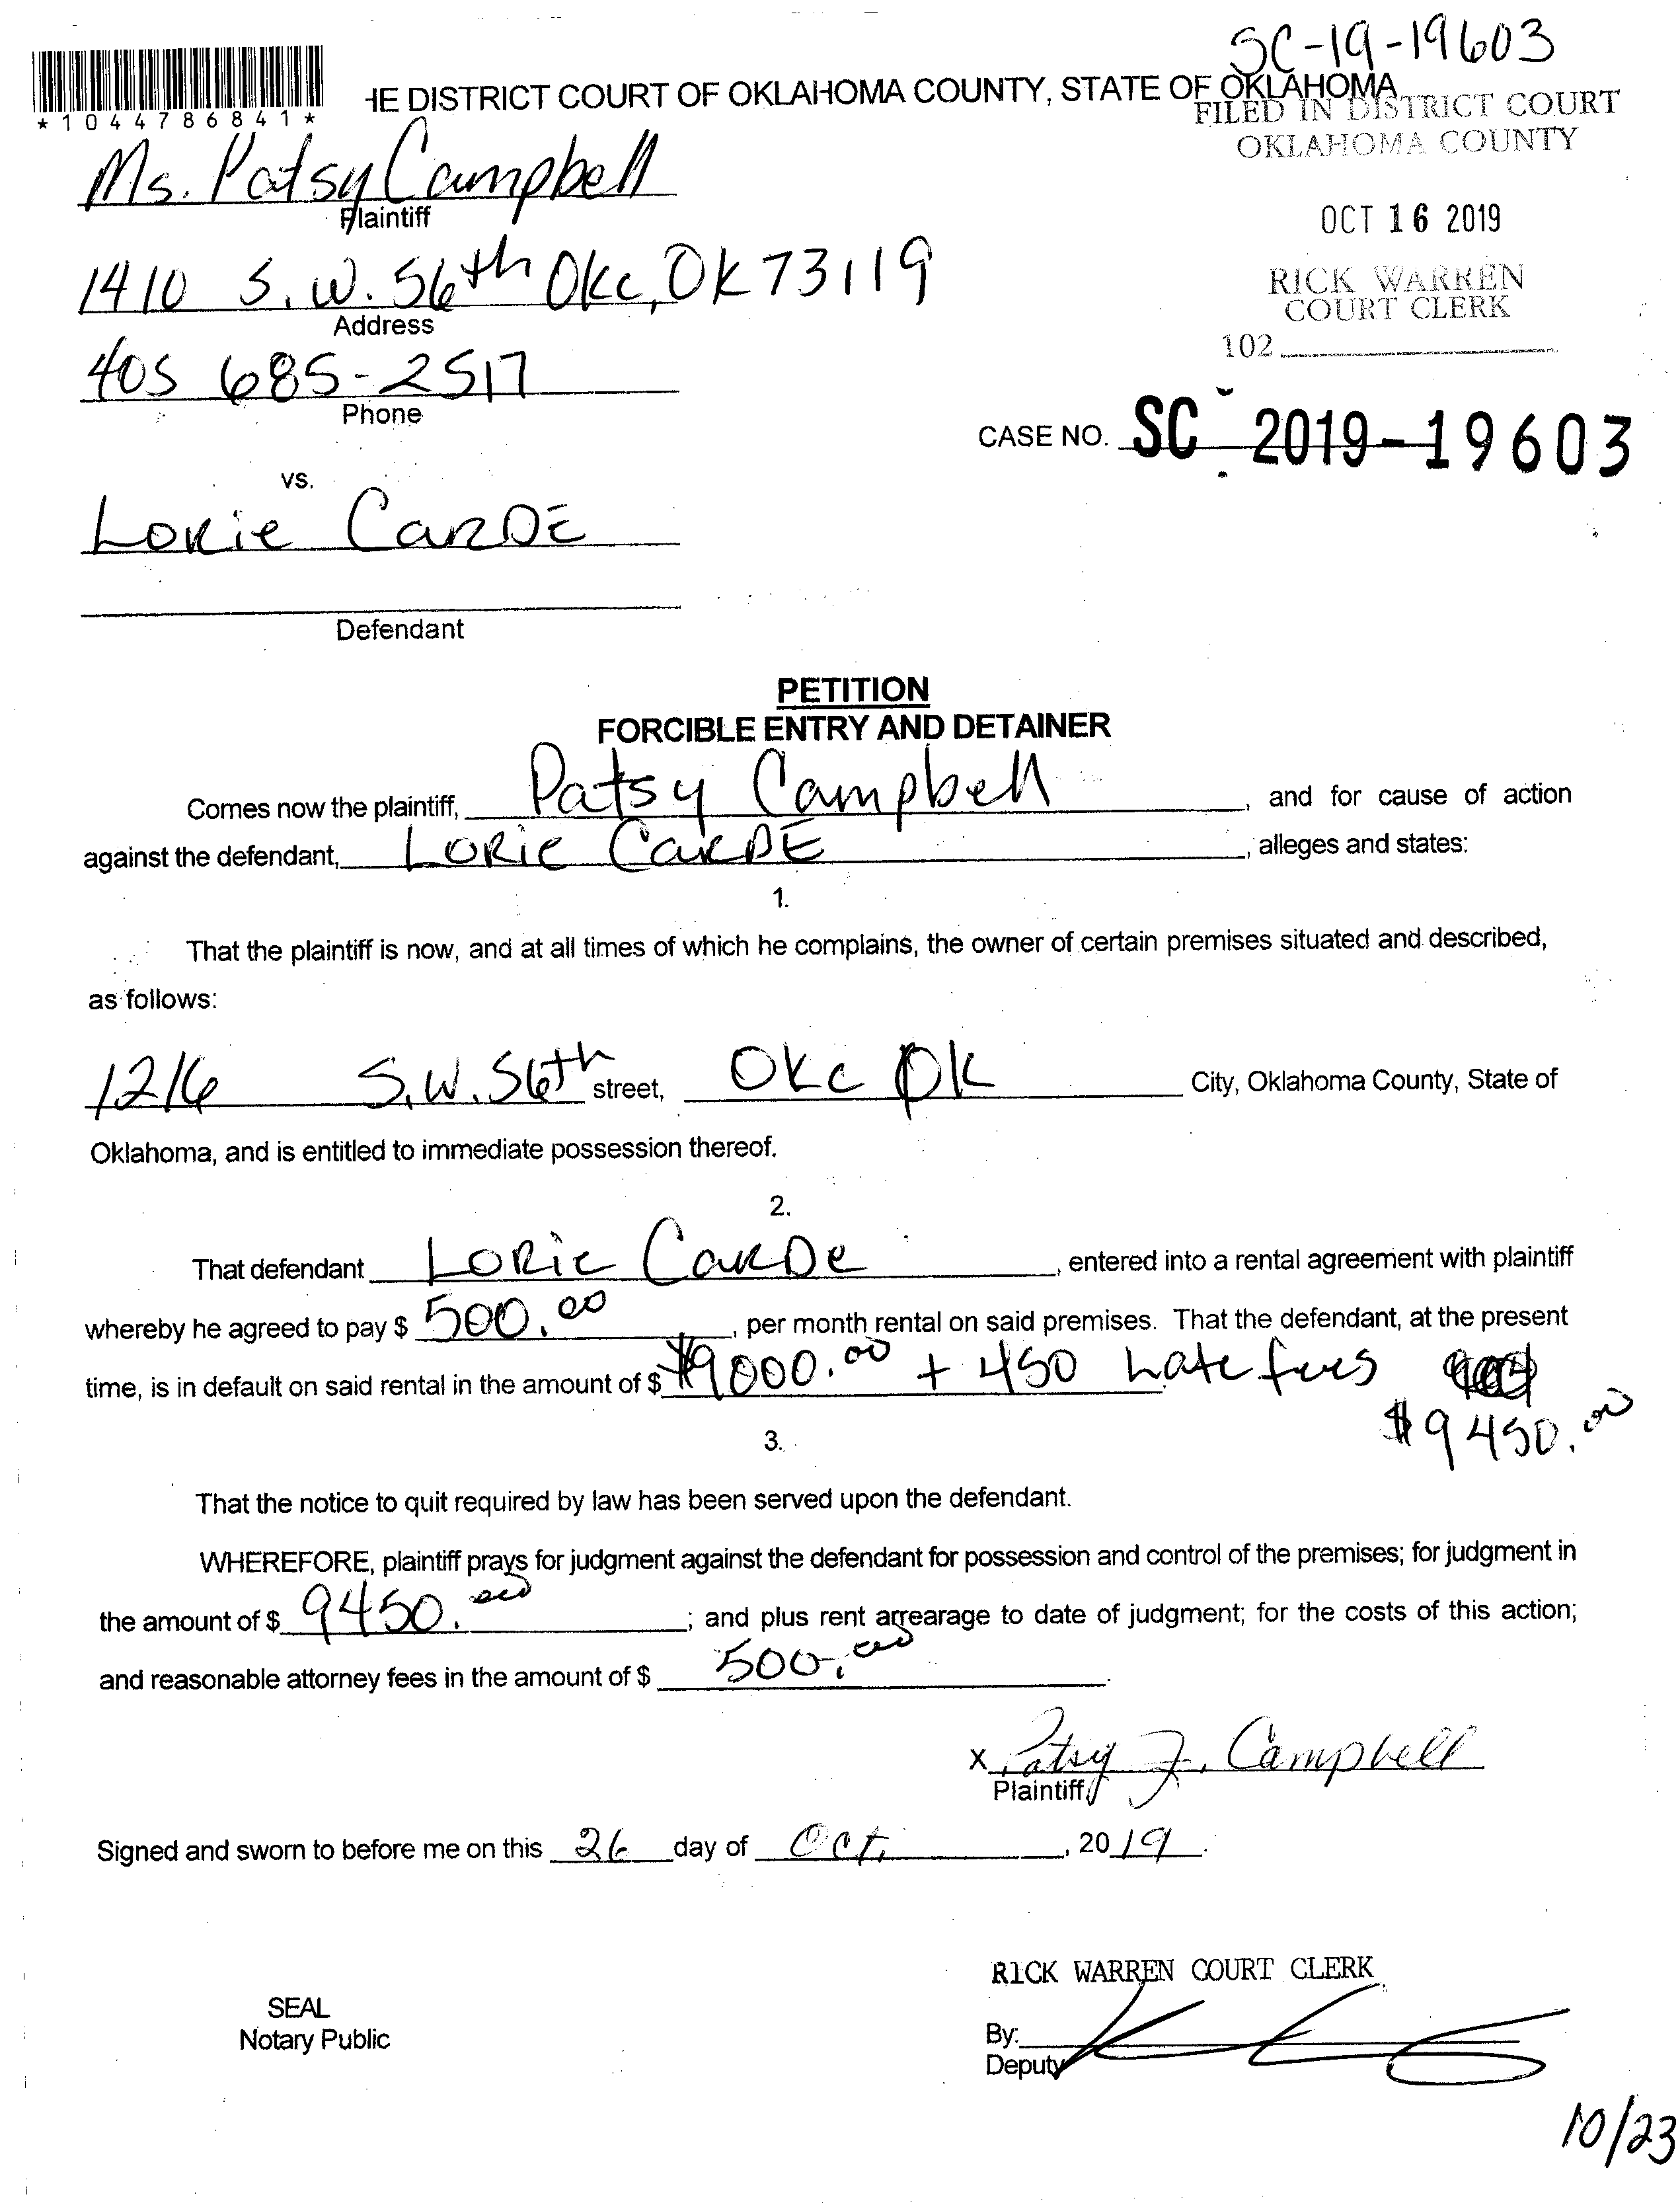 SC-19-19603
*1044786841*
HE DISTRICT COURT OF OKLAHOMA COUNTY, STATE OF OKLAHOMA
FILED IN DISTRICT COURT
OKLAHOMA COUNTY
Ms. Patsy Campbell
Plaintiff
OCT 16 2019
1410 S.W. 56th Okc, OK 73119
Address
RICK WARREN
COURT CLERK
102
405 685-2517
Phone
CASE NO. SC - 2019-19603
vs.
LORie CARDE
Defendant
PETITION
FORCIBLE ENTRY AND DETAINER
Comes now the plaintiff, Patsy Campbell, and for cause of action
against the defendant, LORie CARDE, alleges and states:
1.
That the plaintiff is now, and at all times of which he complains, the owner of certain premises situated and described,
as follows:
1216 S.W. 56th street, OKC OK City, Oklahoma County, State of
Oklahoma, and is entitled to immediate possession thereof.
2.
That defendant LORie CARDe, entered into a rental agreement with plaintiff
whereby he agreed to pay $ 500.00, per month rental on said premises. That the defendant, at the present
time, is in default on said rental in the amount of $ $9000.00 + 450 Late fees
$9450.00
3.
That the notice to quit required by law has been served upon the defendant.
WHEREFORE, plaintiff prays for judgment against the defendant for possession and control of the premises; for judgment in
the amount of $ 9450.00; and plus rent arrearage to date of judgment; for the costs of this action;
and reasonable attorney fees in the amount of $ 500.00.
x Patsy J. Campbell
Plaintiff
Signed and sworn to before me on this 26 day of Oct, 2019.
RICK WARREN COURT CLERK
SEAL
Notary Public
By:
Deputy
10/23